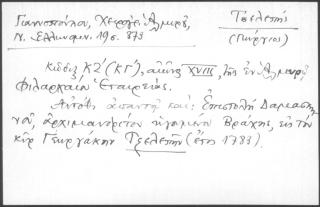 Γιαννοπούλου, Χειρόγρ. Ἁλμυροῦ,
Ν. Ἑλληνομν. 19ος. 873
Τσελεπής
(Γεώργιος)
Κώδιξ ΚΖ′ (ΚΓ′), αἰῶνος XVIII, τῆς ἐν Ἁλμυρῷ
Φιλαρχαίου Ἑταιρείας.
Αὐτόθι, ἀπαντᾷ καί: Ἐπιστολὴ Δαμασκη
νοῦ, ἀρχιμανδρίτου ἡγουμένου Βράχης, εἰς τὸν
κύρ Γεωργάκην Τζελεπῆν (ἔτος 1783).